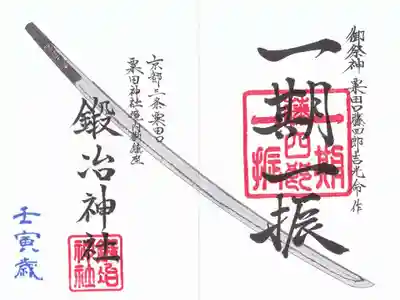 御祭神 粟田口藤四郎吉光命 作
一期一振
京都三条粟田口
粟田神社境内鎮座
鍛冶神社
壬寅歳
一期
藤四郎
一振
鍛冶
神社